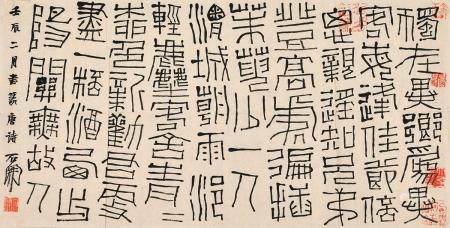 獨在異鄉為異
客每逢佳節倍
思親遙知兄弟
登高處遍插
茱萸少一人
渭城朝雨浥
輕塵客舍青=
柳色新勸君更
盡一杯酒西出
陽關無故人
壬辰二月書篆唐詩